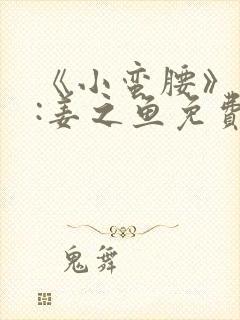 《小蛮腰》
:姜之鱼免費
鬼舞